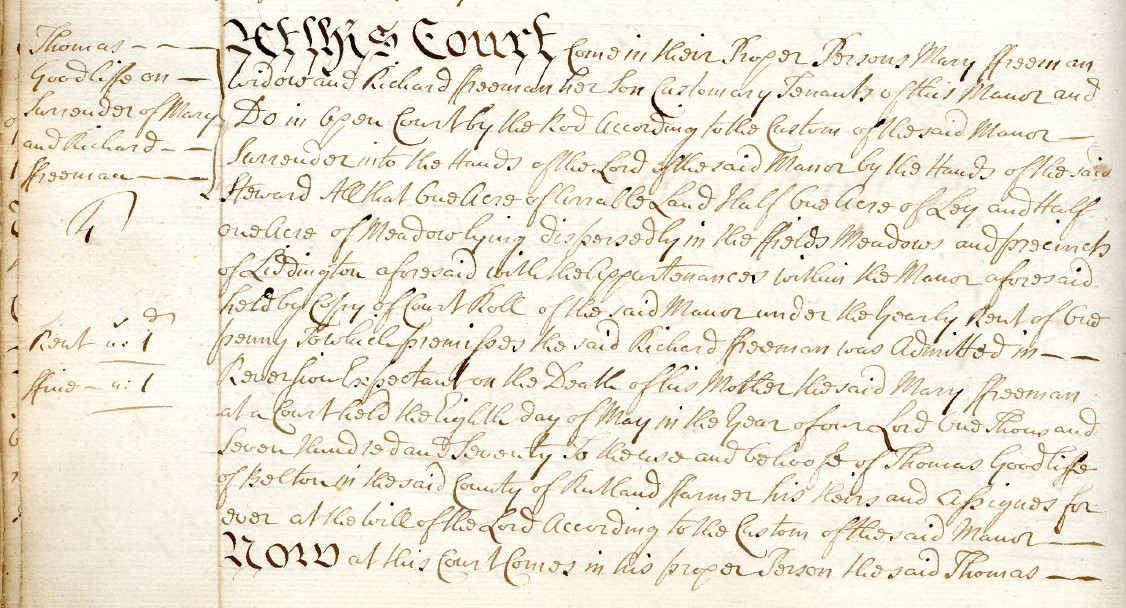 Thomas — —
Goodliffe on —
Surrender of Mary
and Richard — —
ffreeman — — —
4
s d
Rent " : 1
ffine — " : 1
At this Court Come in their Proper Persons Mary ffreeman
Widow and Richard ffreeman her Son Customary Tenants of this Manor and
Do in open Court by the Rod According to the Custom of the said Manor —
Surrender into the Hands of the Lord of the said Manor by the Hands of the said
Steward All that One Acre of Arrable Land Half One Acre of Ley and Half
one Acre of Meadow lying dispersedly in the ffields Meadows and precincts
of Liddington aforesaid with the Appurtenances within the Manor aforesaid
held by Copy of Court Roll of the said Manor under the Yearly Rent of One
penny To which premisses the said Richard ffreeman was Admitted in — —
Reversion Expectant on the Death of his Mother the said Mary ffreeman
at a Court held the Eighth day of May in the Year of our Lord One Thousand
Seven Hundred and Seventy To the use and behoofe of Thomas Goodliffe
of Belton in the said County of Rutland ffarmer his Heirs and Assignes for
ever at the Will of the Lord According to the Custom of the said Manor —
Now at this Court Comes in his proper Person the said Thomas — —